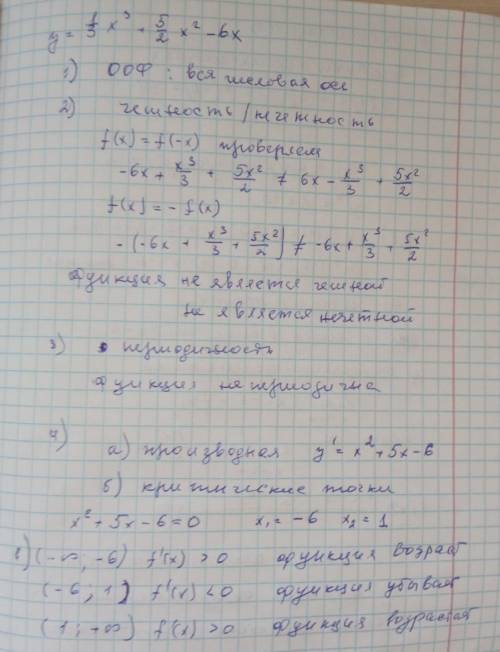 y = 1/3 x³ + 5/2 x² - 6x
1) ООФ : вся числовая ось
2) четность / нечетность
f(x) = f(-x) проверяем
-6x + x³/3 + 5x²/2 ≠ 6x - x³/3 + 5x²/2
f(x) = - f(x)
- (-6x + x³/3 + 5x²/2) ≠ -6x + x³/3 + 5x²/2
Функция не является четной
не является нечетной
3) периодичность
функция не периодична
4)
а) производная y' = x² + 5x - 6
б) критические точки
x² + 5x - 6 = 0 x₁ = -6 x₂ = 1
в) (-∞; -6) f'(x) > 0 функция возраст
(-6; 1) f'(x) < 0 функция убывает
(1; +∞) f'(x) > 0 функция возрастает